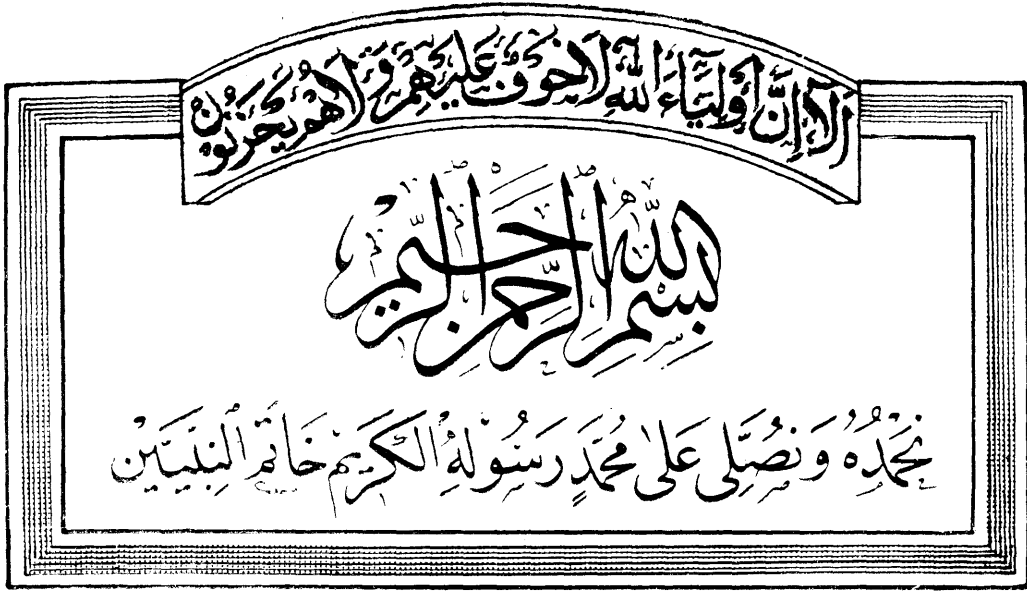 اَلَآ اِنَّ اَوْلِيَآءَ اللّٰهِ لَا خَوْفٌ عَلَيْهِمْ وَ لَا هُمْ يَحْزَنُوْنَ
بِسْمِ اللّٰهِ الرَّحْمٰنِ الرَّحِيْمِ
نَحْمَدُهٗ وَ نُصَلِّی عَلٰی مُحَمَّدٍ رَسُوْلِهِ الْكَرِيْمِ خَاتَمِ النَّبِيِّيْنَ